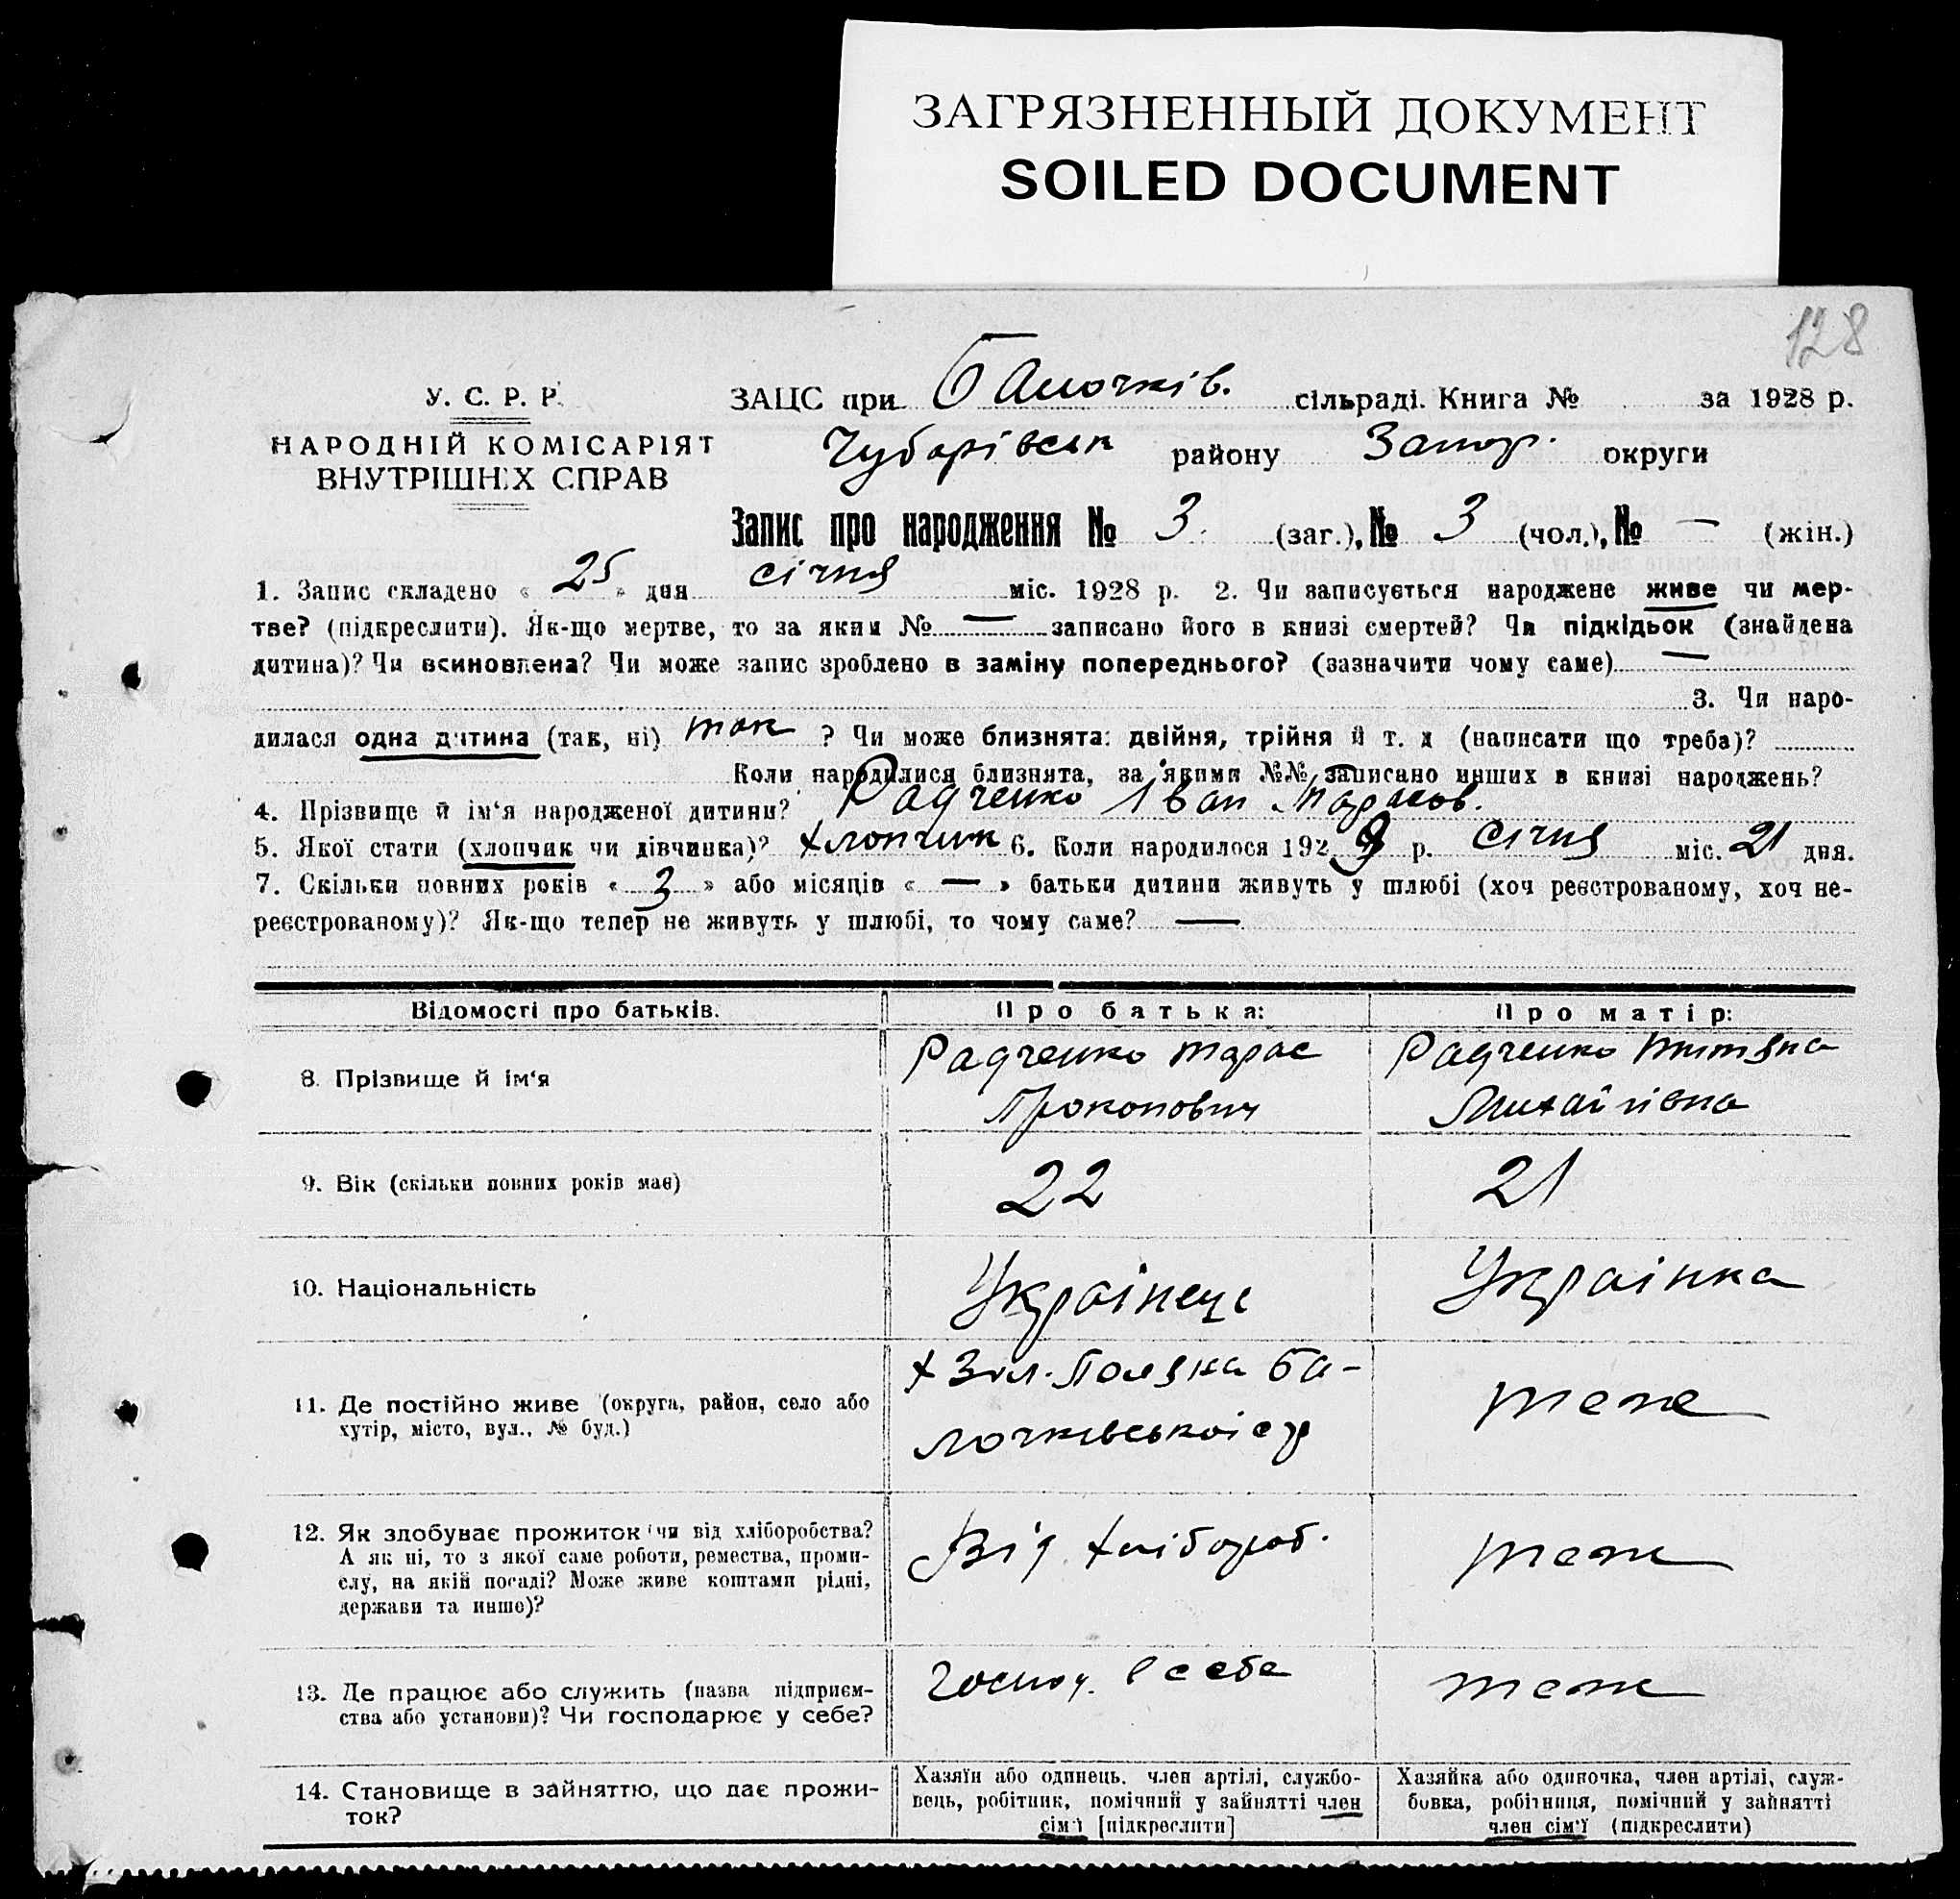 ЗАГРЯЗНЕННЫЙ ДОКУМЕНТ
SOILED DOCUMENT
128
У. С. Р. Р.
НАРОДНІЙ КОМІСАРІЯТ
ВНУТРІШНІХ СПРАВ
ЗАЦС при Балочків. сільраді. Книга № за 1928 р.
Чубарівськ району Запор. округи
Запис про народження № 3. (заг.), № 3 (чол.), № — (жін.)
1. Запис складено « 25 » дня січня міс. 1928 р. 2. Чи записується народжене живе чи мер-
тве? (підкреслити). Як-що мертве, то за яким № — записано його в книзі смертей? Чи підкідьок (знайдена
дитина)? Чи всиновлена? Чи може запис зроблено в заміну попереднього? (зазначити чому саме) —
3. Чи наро-
дилася одна дитина (так, ні) так ? Чи може близнята: двійня, трійня й т. д (написати що треба)?
Коли народилися близнята, за якими №№ записано инших в книзі народжень?
4. Прізвище й ім'я народженої дитини? Радченко Іван Тарасов.
5. Якої стати (хлопчик чи дівчинка)? хлопчик 6. Коли народилося 192 р. січня міс. 21 дня.
7. Скільки повних років « 3 » або місяців « — » батьки дитини живуть у шлюбі (хоч реєстрованому, хоч не-
реєстрованому)? Як-що тепер не живуть у шлюбі, то чому саме? —
Відомості про батьків. Про батька: Про матір:
8. Прізвище й ім'я
Радченко Тарас
Прокопович
Радченко
Михайлівна
9. Вік (скільки повних років має) 22 21
10. Національність Українець Українка
11. Де постійно живе (округа, район, село або
хутір, місто, вул., № буд.)
х Зел. Поляна Ба-
лочківської ср
теж
12. Як здобуває прожиток чи від хліборобства?
А як ні, то з якої саме роботи, ремества, проми-
слу, на якій посаді? Може живе коштами рідні,
держави та инше)?
Від хлібороб.
теж
13. Де працює або служить (назва підприєм-
ства або установи)? Чи господарює у себе?
Господ. в себе
теж
14. Становище в зайняттю, що дає прожи-
ток?
Хазяїн або одинець. член артілі, службо-
вець, робітник, помічний у зайнятті член
сім'ї [підкреслити]
Хазяйка або одиночка, член артілі, служ-
бовка, робітниця, помічний у зайнятті
член сім'ї (підкреслити)